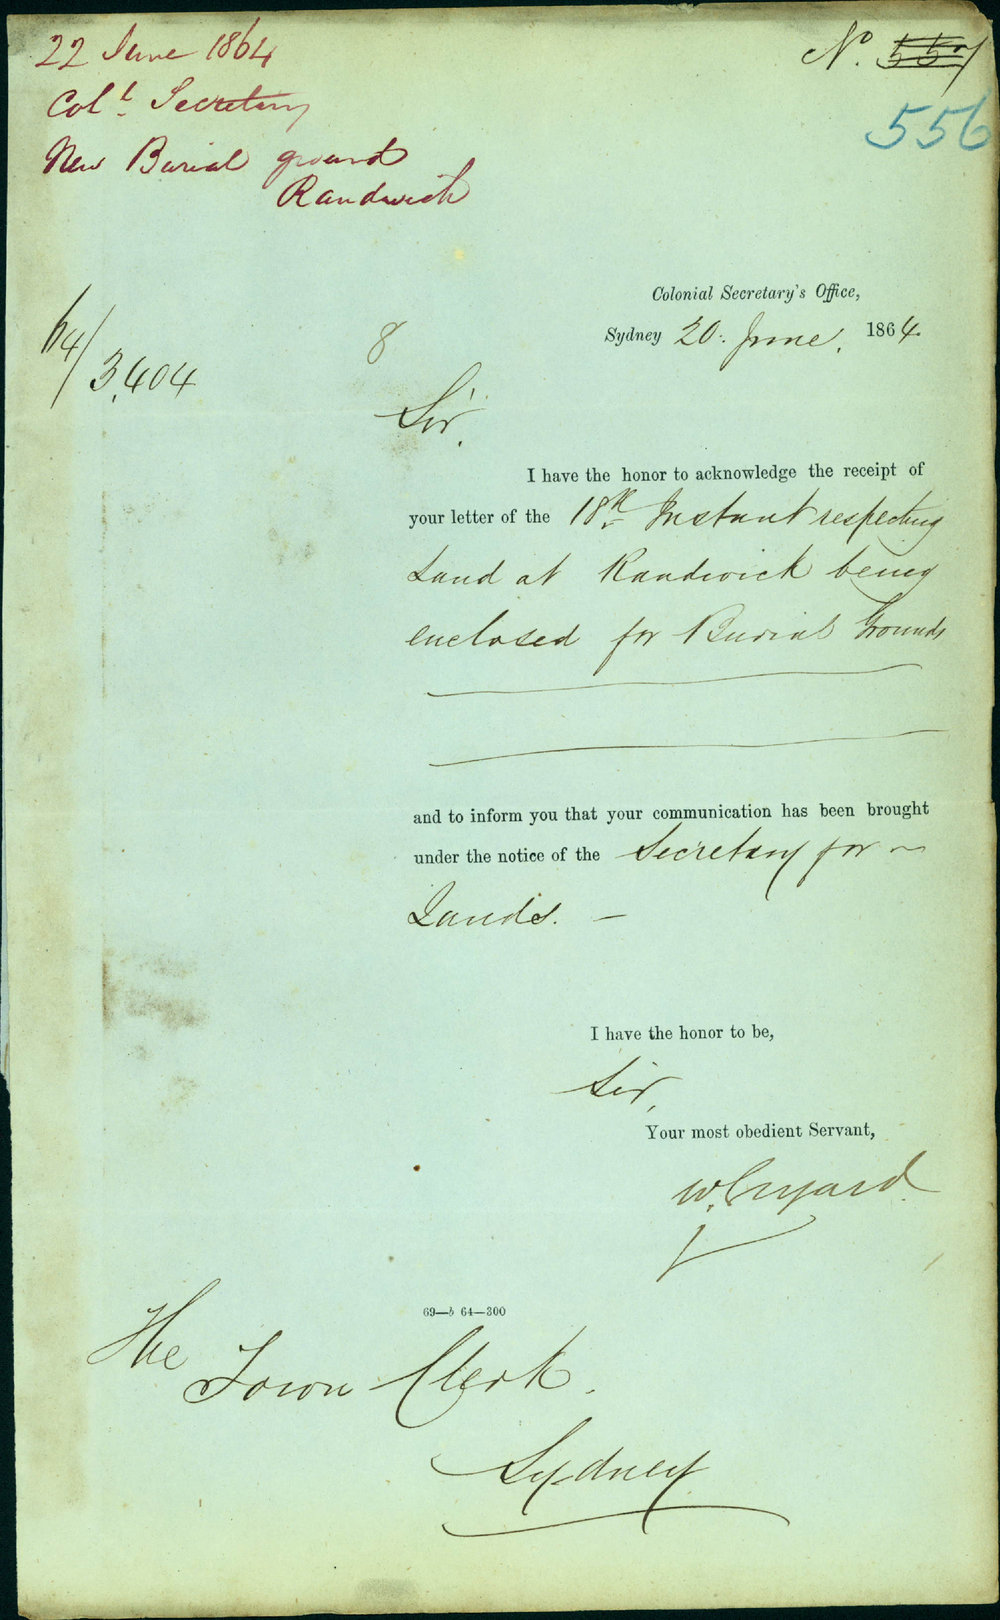 22 June 1864
Col.l Secretary
New Burial ground
Randwich
No. 557
556
Colonial Secretary's Office,
Sydney 20. June. 1864.
64/3,404
8
Sir.
I have the honor to acknowledge the receipt of
your letter of the 18th Instant respecting
Land at Randwick being
enclosed for Burial Grounds
and to inform you that your communication has been brought
under the notice of the Secretary for
Lands. —
I have the honor to be,
Sir,
Your most obedient Servant,
W. Elyard.
69—b 64—300
The
Town Clerk.
Sydney